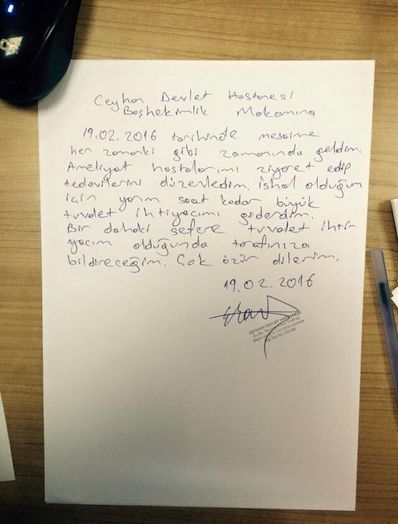 Ceyhan Devlet Hastanesi
Başhekimlik Makamına
19.02.2016 tarihinde mesaime
her zamanki gibi zamanında geldim.
Ameliyat hastalarımı ziyaret edip
tedavilerini düzenledim. İshal olduğum
için yarım saat kadar büyük
tuvalet ihtiyacımı giderdim.
Bir dahaki sefere tuvalet ihti-
yacım olduğunda tarafınıza
bildireceğim. Çok özür dilerim.
19.02.2016